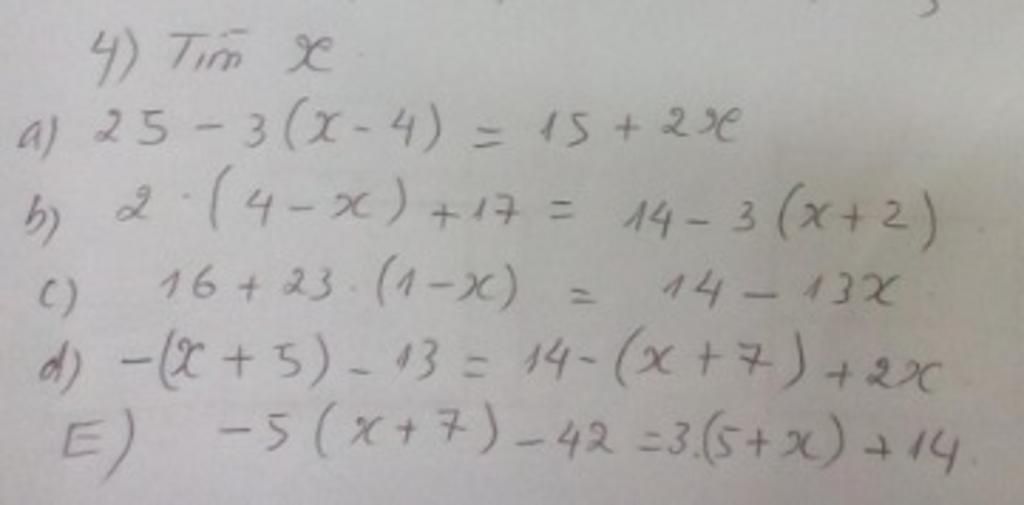 4) Tìm x
a) 25 - 3(x - 4) = 15 + 2x
b) 2 . (4 - x) + 17 = 14 - 3(x + 2)
c) 16 + 23 . (1 - x) = 14 - 13x
d) -(x + 5) - 13 = 14 - (x + 7) + 2x
E) -5(x + 7) - 42 = 3.(5 + x) + 14